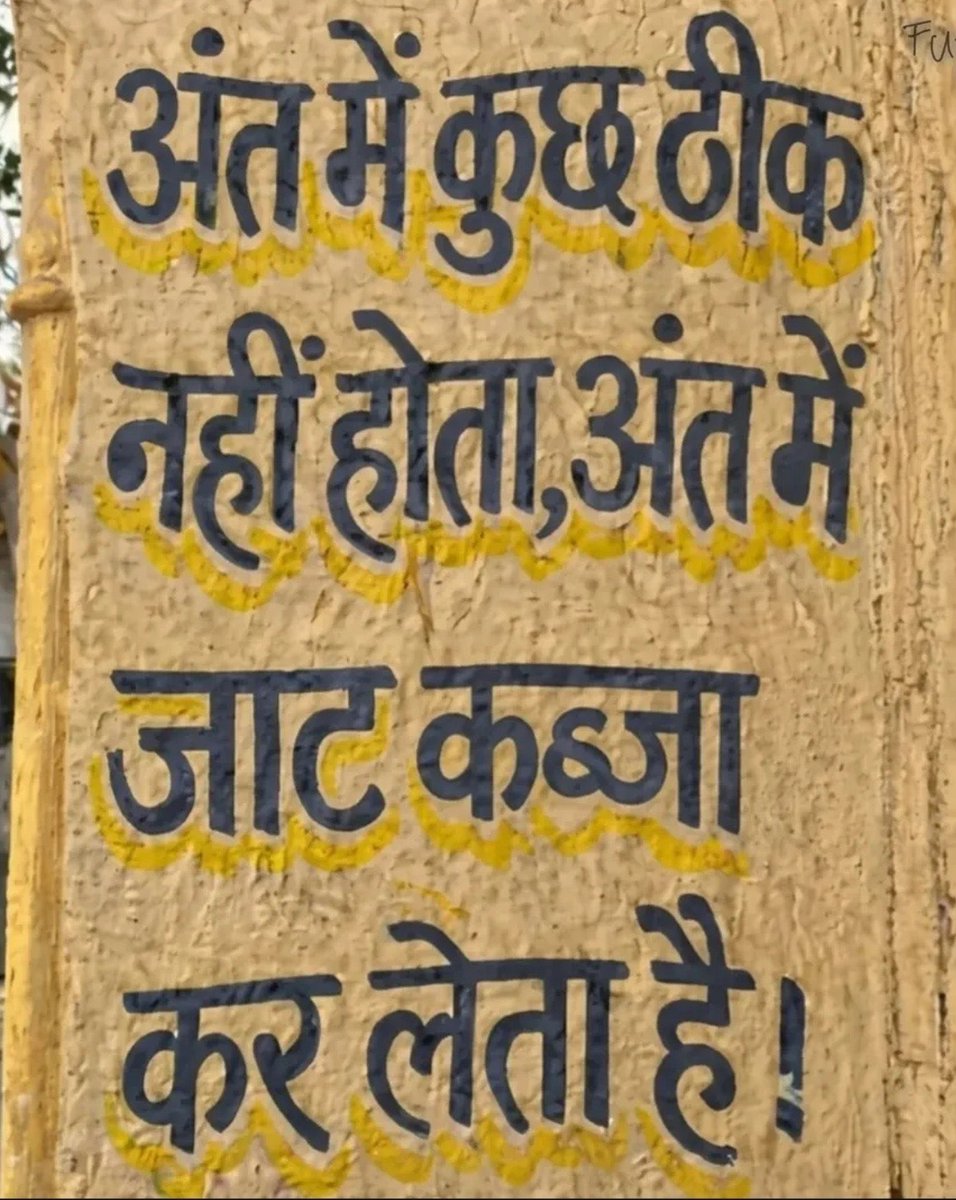 अंत में कुछ ठीक
नहीं होता, अंत में
जाट कब्जा
कर लेता है।